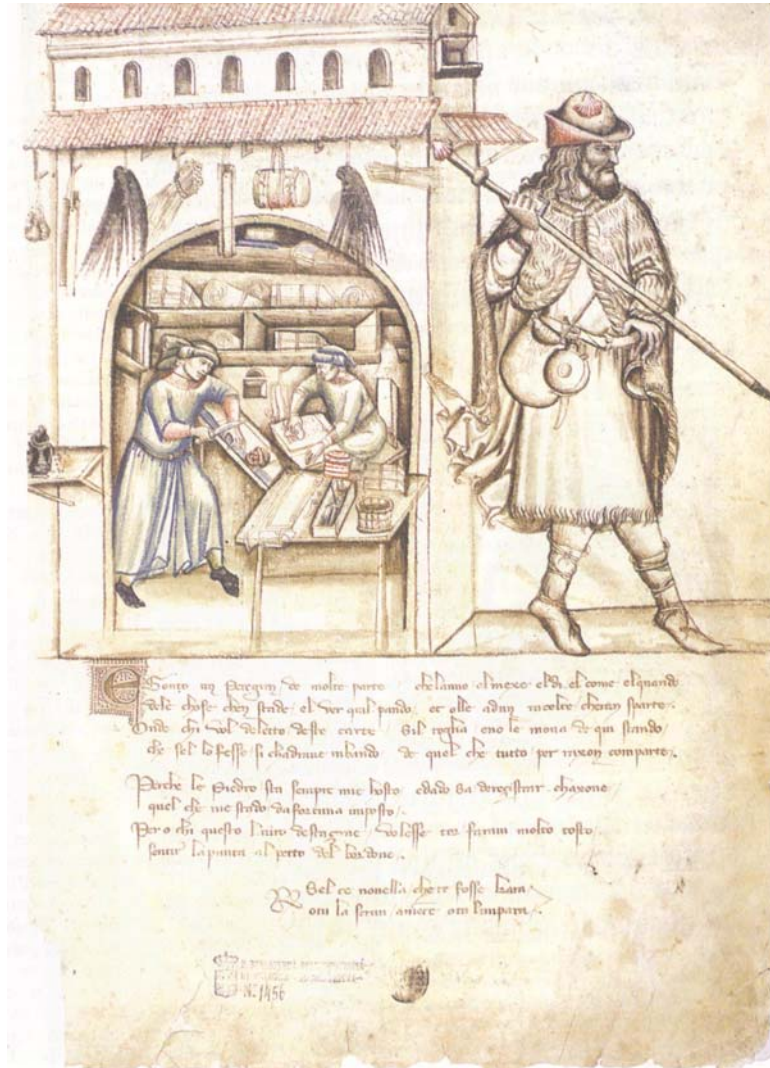 E Sonto un Peregrin de molte parte che lanno el mexe el di el come el quando
dele chose chen stade el ver qual pando et olle adun racolte cheran sparte
Onde chi vol deletto deste carte Sil toglia eno le mova de qui stando
che sel lo fesse si inbando de quel che tutto per rixon comparte
Perche le Piedro sta sempre mie hosto edado deregistrar chaxone
quel che me stado da fortuna imposto
Pero chi questo livro volesse tor molto tosto
sentir la punta al petto del bordone
Sel te novella che te fosse
otu la otu lanpara
N. 1456